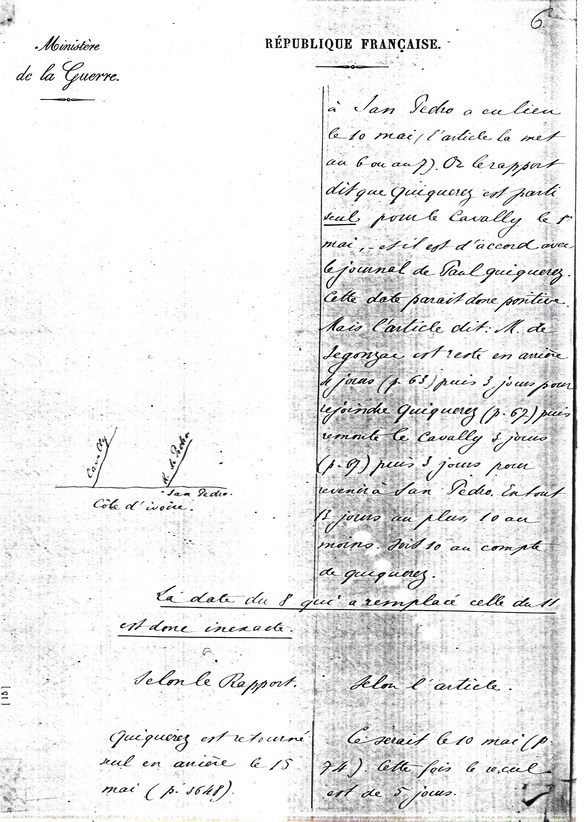 6
Ministère
de la Guerre.
RÉPUBLIQUE FRANÇAISE.
à San Pedro a eu lieu
le 10 mai, (l'article la met
au 6 ou au 7). Or le rapport
dit que Quiquerez est parti
seul pour le Cavally le 5
mai, - et il est d'accord avec
le journal de Paul Quiquerez.
Cette date parait donc positive.
Mais l'article dit: M. de
Segonzac est resté en arrière
4 jours (p. 63) puis 3 jours pour
rejoindre Quiquerez (p. 67) puis
remonte le Cavally 3 jours
(p. 9) puis 3 jours pour
revenir à San Pedro. En tout
13 jours au plus, 10 au
moins. Soit 10 au compte
de Quiquerez.
Cavally
R. de Pedro
San Pedro.
Côte d'ivoire.
La date du 8 qui a remplacé celle du 11
est donc inexacte.
Selon le Rapport.
Quiquerez est retourné
seul en arrière le 15
mai (p. 1648).
Selon l'article.
Ce serait le 10 mai (p.
74). Cette fois le recul
est de 5 jours.
[15]